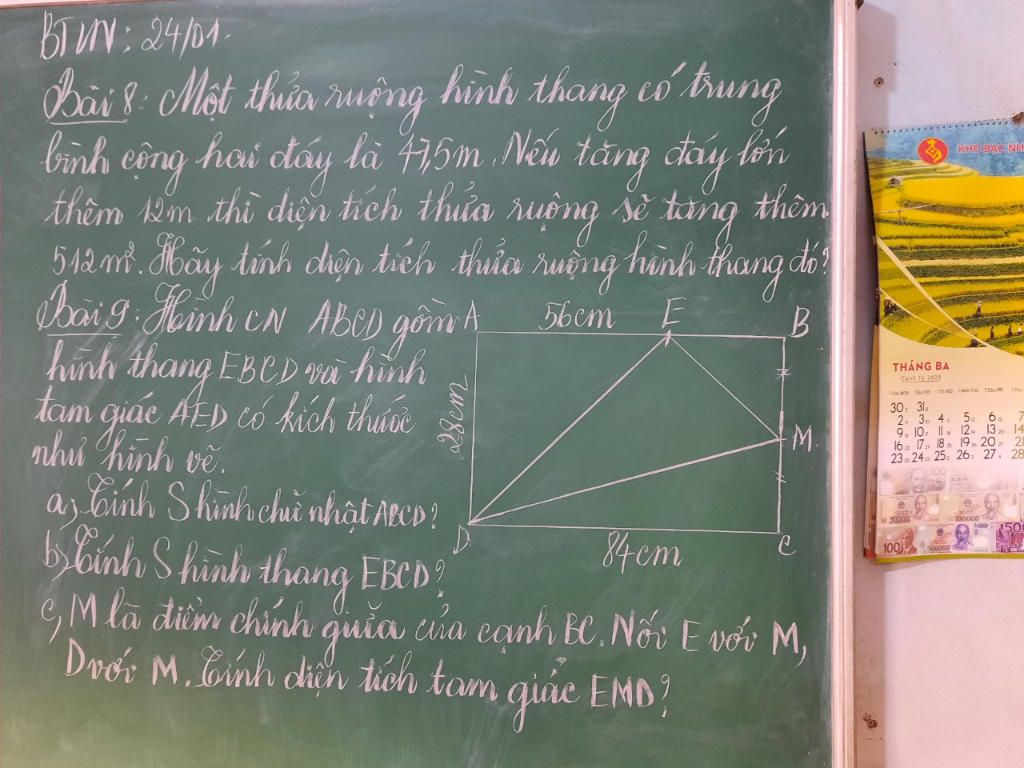 BTVN: 24/01.
Bài 8: Một thửa ruộng hình thang có trung
bình cộng hai đáy là 47,5m. Nếu tăng đáy lớn
thêm 12m thì diện tích thửa ruộng sẽ tăng thêm
512m². Hãy tính diện tích thửa ruộng hình thang đó?
Bài 9: Hình CN ABCD gồm
hình thang EBCD và hình
tam giác AED có kích thước
như hình vẽ.
a, Tính S hình chữ nhật ABCD?
b, Tính S hình thang EBCD?
c, M là điểm chính giữa của cạnh BC. Nối E với M,
D với M. Tính diện tích tam giác EMD?
A 56cm E B
28cm
M
D 84cm C
KHO BẠC NH
THÁNG BA
Canh Tý 2020
30 31
2 3 4 5 6 7
9 10 11 12 13 14
16 17 18 19 20 21
23 24 25 26 27 28